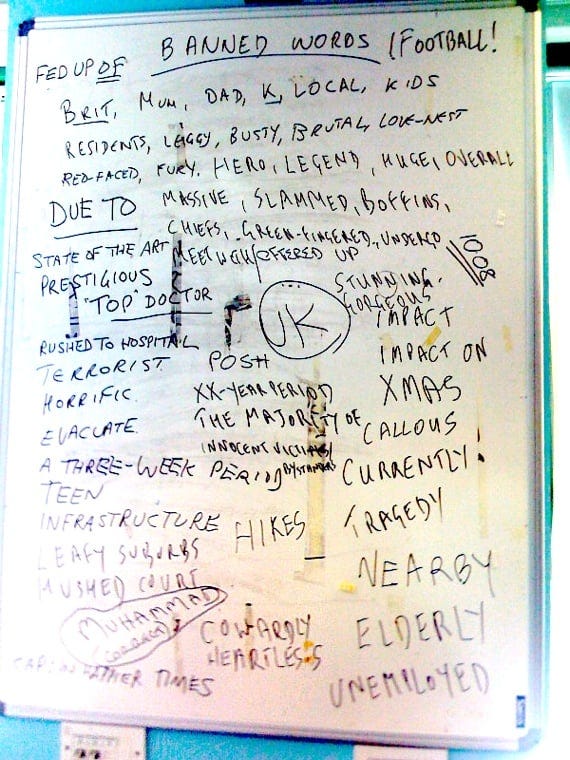 BANNED WORDS (FOOTBALL!
FED UP OF
BRIT, MUM, DAD, K, LOCAL, KIDS
RESIDENTS, LEGGY, BUSTY, BRUTAL, LOVE-NEST
RED-FACED, FURY, HERO, LEGEND, HUGE, OVERALL
DUE TO MASSIVE, SLAMMED, BOFFINS,
CHIEFS, GREEN-FINGERED, UNDERGO
STATE OF THE ART MEET WITH/OFFERED UP
10.08
PRESTIGIOUS
STUNNING.
"TOP" DOCTOR
GORGEOUS
UK
IMPACT
RUSHED TO HOSPITAL
IMPACT ON
TERRORIST
POSH
HORRIFIC
XX-YEAR PERIOD
XMAS
THE MAJORITY OF
EVACUATE
CALLOUS
INNOCENT VICTIMS/
BYSTANDERS
A THREE-WEEK PERIOD
CURRENTLY!
TEEN
INFRASTRUCTURE
HIKES
TRAGEDY
LEAFY SUBURBS
HUSHED COURT
NEARBY
MUHAMMAD
COWARDLY
HEARTLESS
ELDERLY
FATHER TIMES
UNEMPLOYED